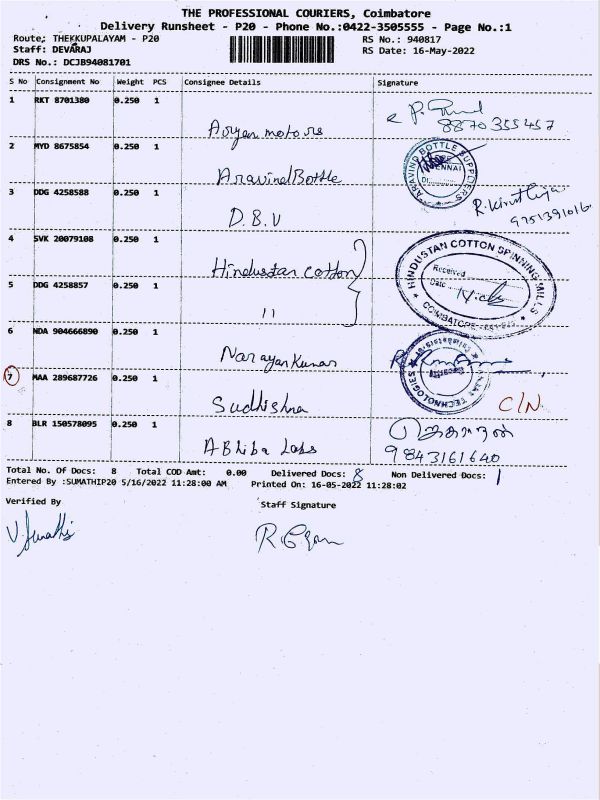 THE PROFESSIONAL COURIERS, Coimbatore
Delivery Runsheet - P20 - Phone No.:0422-3505555 - Page No.:1
Route: THEKKUPALAYAM - P20
RS No.: 940817
Staff: DEVARAJ
RS Date: 16-May-2022
DRS No.: DCJB94081701
S No Consignment No Weight PCS Consignee Details Signature
1 RKT 8701380 0.250 1 Aryan motors
8870355457
2 MYD 8675854 0.250 1 Aravind Bottle
ARAVIND BOTTLE SUPPLIERS
3 DDG 4258588 0.250 1 D.B.V
9751391016
4 SVK 20079108 0.250 1 Hindustan cotton
HINDUSTAN COTTON SPINNING MILLS
Received
Date
5 DDG 4258857 0.250 1 11
6 NDA 904666890 0.250 1 Narayankumar
TECHNOLOGIES
7 MAA 289687726 0.250 1 Sudhishna C/N
8 BLR 150578095 0.250 1 ABhiba Labs
9843161640
Total No. Of Docs: 8 Total COD Amt: 0.00 Delivered Docs: 8 Non Delivered Docs: 1
Entered By :SUMATHIP20 5/16/2022 11:28:00 AM Printed On: 16-05-2022 11:28:02
Verified By Staff Signature